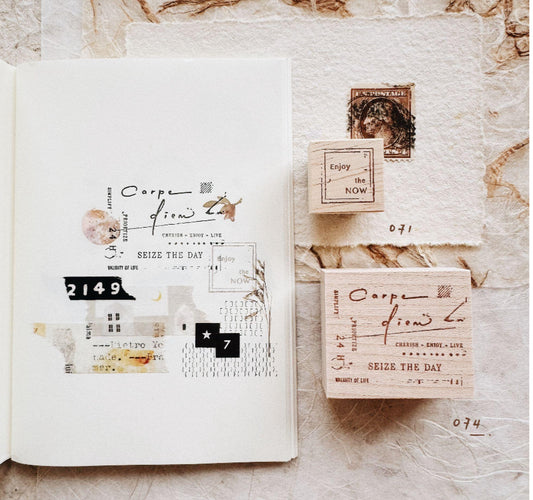 Carpe
diem
SIMPLIFY
PRIORITIZE
24 H
CHERISH - ENJOY - LIVE
SEIZE THE DAY
VALIDITY OF LIFE
Enjoy
the
NOW
2149
7
U.S. POSTAGE
Enjoy
the
NOW
071
Carpe
diem
SIMPLIFY
PRIORITIZE
24 H
CHERISH - ENJOY - LIVE
SEIZE THE DAY
VALIDITY OF LIFE
074